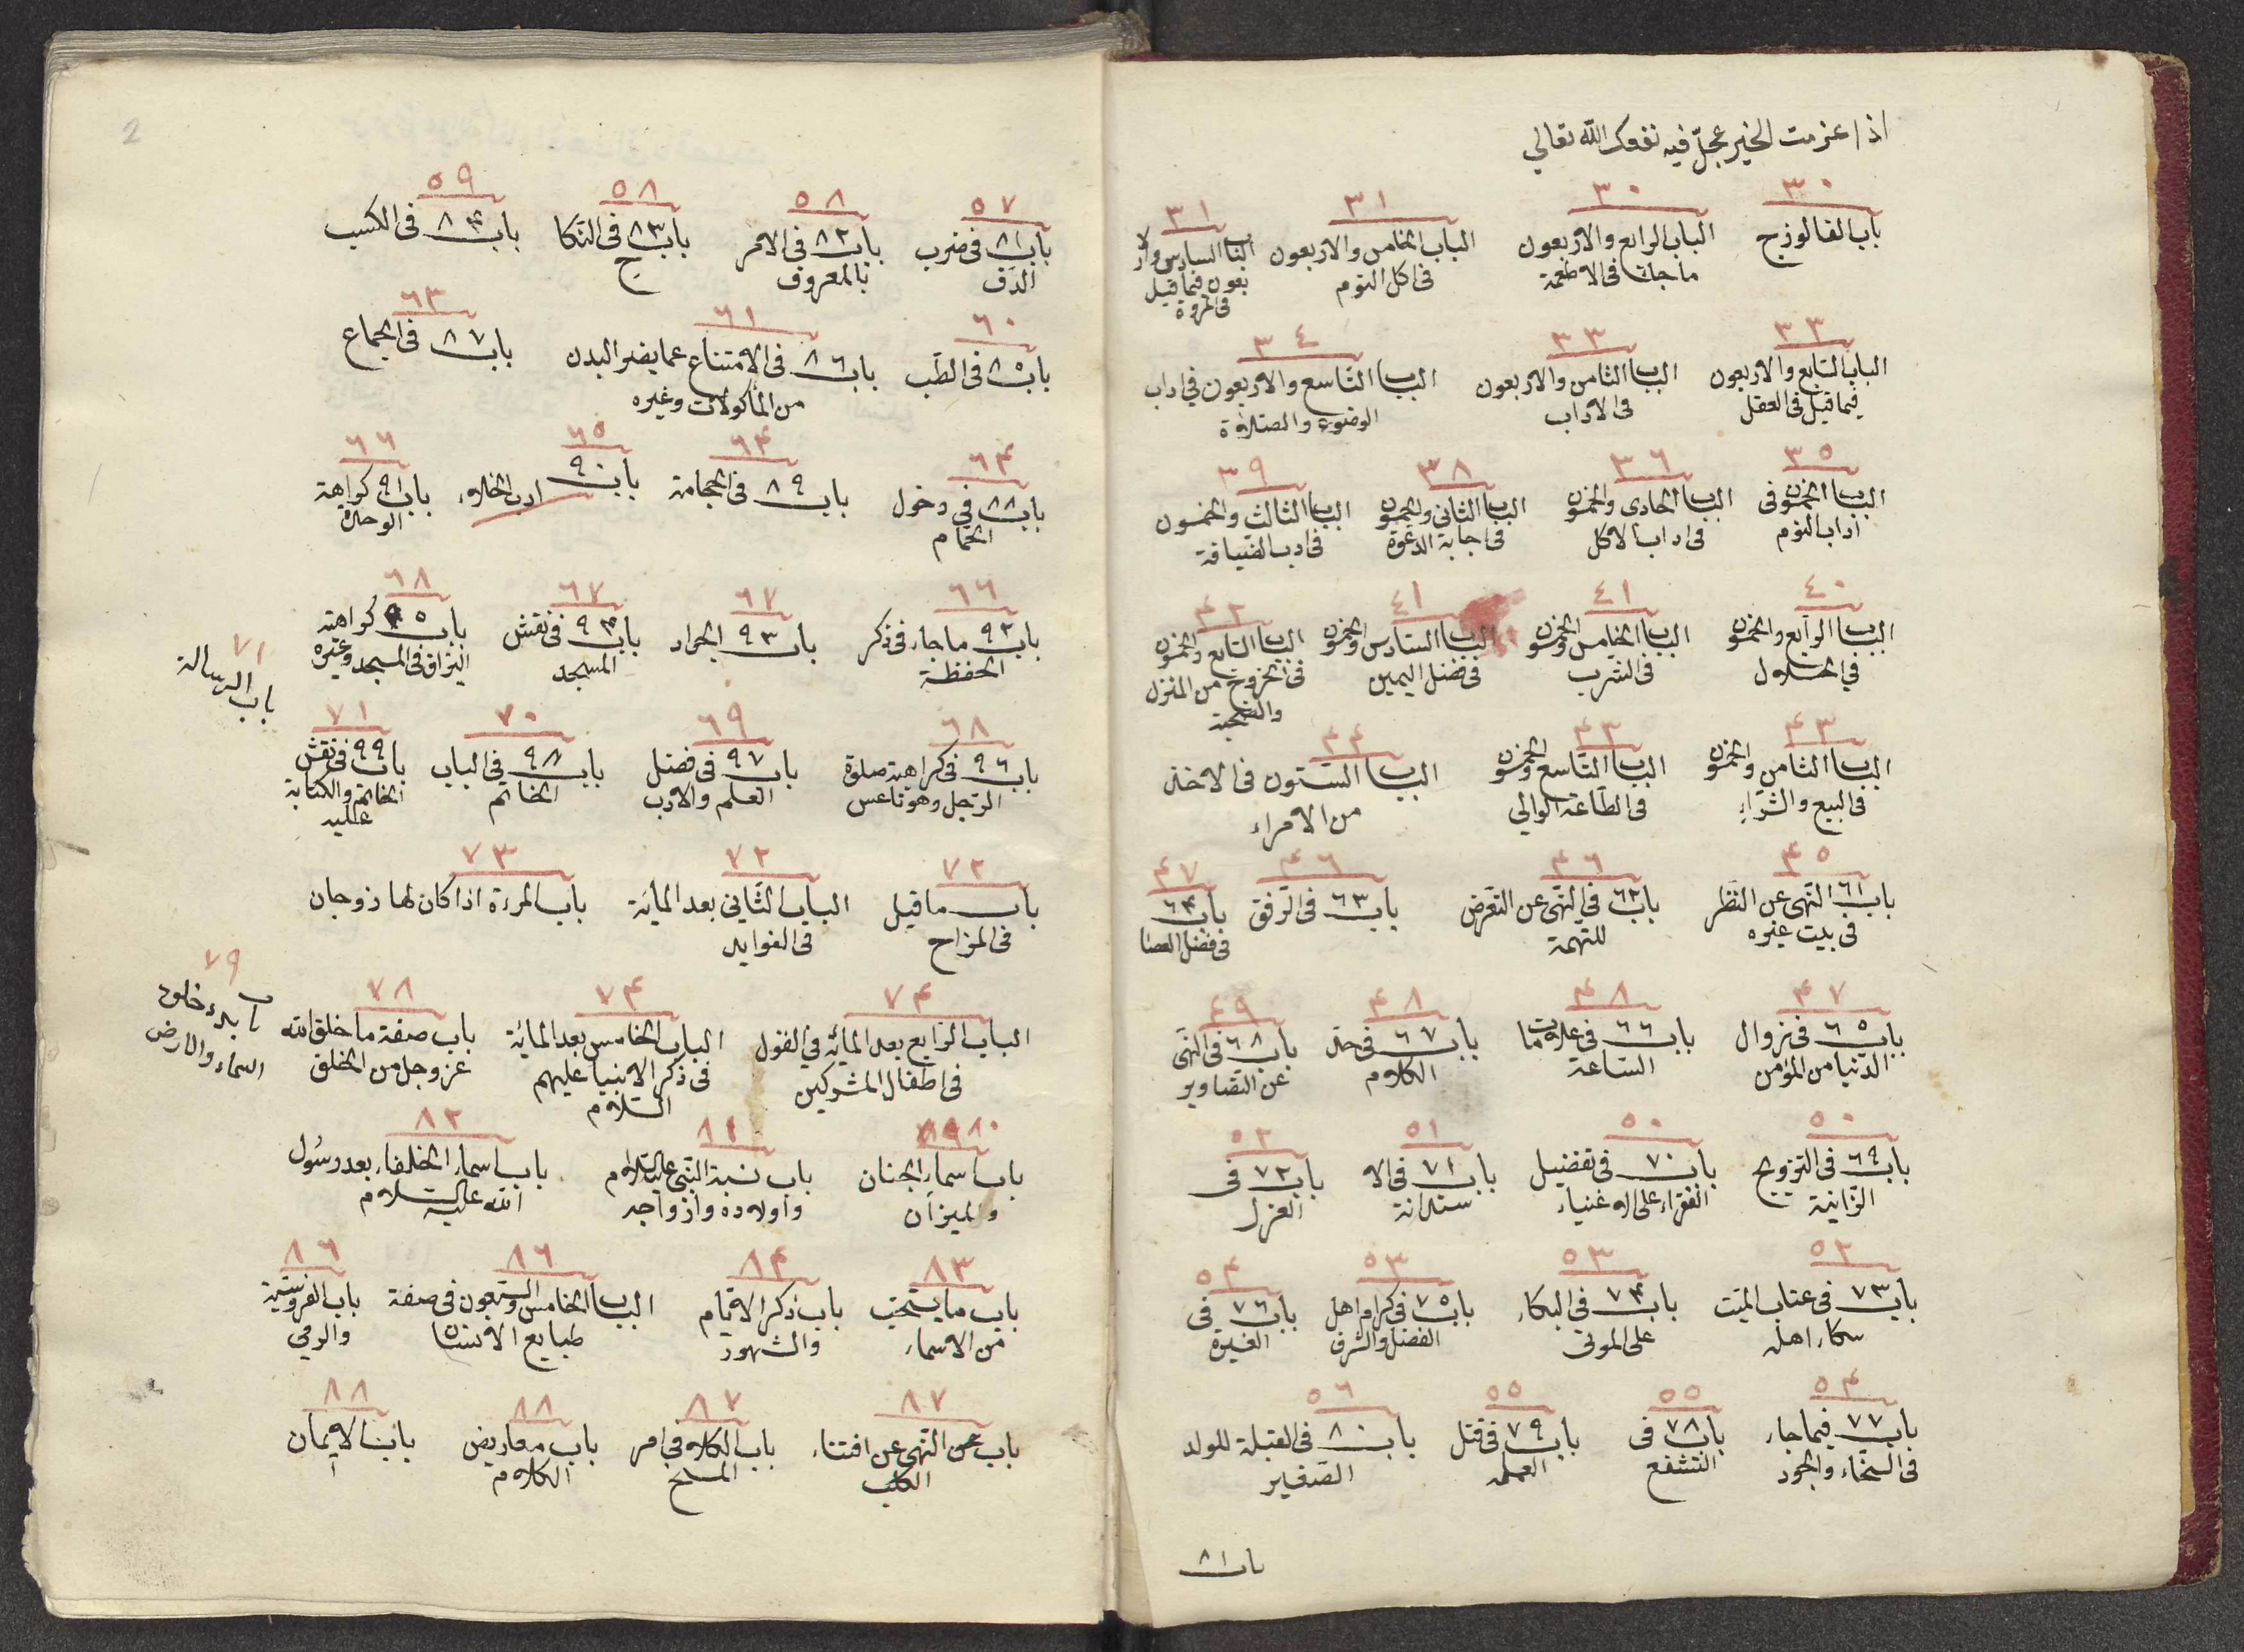 اذا عزمت الخير عجّل فيه نفعك الله تعالي
٣٠ ٣٠ ٣١ ٣١
باب الفالوزج
الباب الرابع والاربعون
ما جاء فى الاطعمة
الباب الخامس والاربعون
فى اكل الثوم
الباب السادس وار
بعون فيما قيل
فى المروة
٣٣ ٣٣ ٣٤
الباب السابع والاربعون
فيما قيل فى العقل
الباب الثامن والاربعون
فى الاداب
الباب التاسع والاربعون في اداب
الوضوء والصلاوة
٣٥ ٣٦ ٣٨ ٣٩
الباب الخمسون فى
اداب النوم
الباب الحادى والخمسون
فى اداب الاكل
الباب الثانى والخمسون
فى اجابة الدعوة
الباب الثالث والخمسون
فى ادب الضيافة
٤٠ ٤١ ٤١ ٤٢
الباب الرابع والخمسون
في الخلال
الباب الخامس والخمسون
فى الشرب
الباب السادس والخمسون
فى فضل اليمين
الباب السابع والخمسون
فى الخروج من المنزل
والصحبة
٤٣ ٤٣ ٤٤
الباب الثامن والخمسون
فى البيع والشراء
الباب التاسع والخمسون
فى الطاعة الوالي
الباب الستون فى الاخذ
من الامراء
٤٥ ٤٦ ٤٦ ٤٧
باب ٦١ النهى عن النظر
فى بيت غيره
باب ٦٢ في النهى عن التعرض
للتهمة
باب ٦٣ فى الرفق
باب ٦٤
فى فضل العصا
٤٧ ٤٨ ٤٨ ٤٩
باب ٦٥ فى زوال
الدنيا من المؤمن
باب ٦٦ فى علامات
الساعة
باب ٦٧ فى حد
الكلام
باب ٦٨ فى النهى
عن التصاوير
٥٠ ٥٠ ٥١ ٥٢
باب ٦٩ فى التزويج
الزانية
باب ٧٠ فى تفضيل
الفقراء على الاغنياء
باب ٧١ فى الا
ستدانة
باب ٧٢ فى
العزل
٥٢ ٥٣ ٥٣ ٥٤
باب ٧٣ فى عتاب الميت
بكاء اهله
باب ٧٤ فى البكاء
على الموتى
باب ٧٥ فى كرام اهل
الفضل والشرف
باب ٧٦ فى
الغيرة
٥٤ ٥٥ ٥٥ ٥٦
باب ٧٧ فيما جاء
فى السخاء والجود
باب ٧٨ فى
التشفع
باب ٧٩ فى قتل
النملة
باب ٨٠ فى القبلة للولد
الصغير
باب ٨١
2
٥٧ ٥٨ ٥٨ ٥٩
باب ٨١ فى ضرب
الدف
باب ٨٢ فى الامر
بالمعروف
باب ٨٣ فى النكا
ح
باب ٨٤ فى الكسب
٦٠ ٦١ ٦٣
باب ٨٥ فى الطب
باب ٨٦ فى الامتناع عما يضر البدن
من المأكولات وغيره
باب ٨٧ فى الجماع
٦٤ ٦٤ ٦٥ ٦٦
باب ٨٨ في دخول
الحمام
باب ٨٩ فى الحجامة
باب ٩٠ ادب الخلاء
باب ٩١ كراهة
الوحدة
٦٦ ٦٧ ٦٧ ٦٨
باب ٩٢ ما جاء فى ذكر
الحفظة
باب ٩٣ الجراد
باب ٩٤ فى نقش
المسجد
باب ٩٥ كراهة
البزاق فى المسجد وغيره
٧١
باب الرسالة
٦٨ ٦٩ ٧٠ ٧١
باب ٩٦ فى كراهية صلوة
الرجل وهو ناعس
باب ٩٧ فى فضل
العلم والادب
باب ٩٨ فى الباب
الخاتم
باب ٩٩ فى نقش
الخاتم والكتابة
عليه
٧٢ ٧٢ ٧٣
باب ما قيل
فى المزاح
الباب الثانى بعد المائة
فى الفوايد
باب المرءة اذا كان لها زوجان
٧٤ ٧٤ ٧٨ ٧٩
الباب الرابع بعد المائه في القول
فى اطفال المشركين
الباب الخامس بعد المائة
فى ذكر الانبيا عليهم
السلام
باب صفة ما خلق الله
عز وجل من الخلق
باب بدء خلق
السماء والارض
٨٠ ٨١ ٨٢
باب اسماء الجنان
والميزان
باب نسبة النبى عليه السلام
واولاده وازواجه
باب اسماء الخلفاء بعد رسول
الله عليه السلام
٨٣ ٨٤ ٨٦ ٨٦
باب ما يستحب
من الاسماء
باب ذكر الايام
والشهور
الباب الخامس والسبعون فى صفة
طبايع الانسان
باب الفروسية
والرمي
٨٧ ٨٧ ٨٨ ٨٨
باب عن النهى عن اقتناء
الكلب
باب الكلام في امر
المسخ
باب معاريض
الكلام
باب الايمان